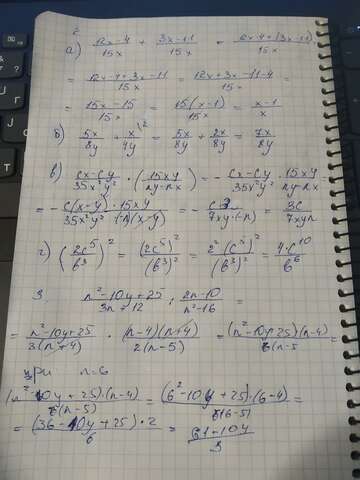 2
а) (12x-4)/15x + (3x-11)/15x = (12x-4+(3x-11))/15x
= (12x-4+3x-11)/15x = (12x+3x-11-4)/15x =
= (15x-15)/15x = 15(x-1)/15x = (x-1)/x
б) 5x/8y + x/4y \2 = 5x/8y + 2x/8y = 7x/8y
в) (cx-cy)/35x²y² · (15xy/(ny-nx)) = - (cx-cy)/35x²y² · 15xy/(ny-nx) =
= - c(x-y)·15xy/35x²y²(-n)(x-y) = - c3/7xy(-n) = 3c/7xyn
г) (2c⁵/b³)² = (2c⁵)²/(b³)² = 2²(c⁵)²/(b³)² = 4c¹⁰/b⁶
3. (n²-10y+25)/(3n+12) : (2n-10)/(n²-16) =
= (n²-10y+25)/3(n+4) · (n-4)(n+4)/2(n-5) = (n²-10y+25)(n-4)/6(n-5 =
при n=6
(n²-10y+25)·(n-4)/6(n-5) = (6²-10y+25)·(6-4)/6(6-5) =
= (36-10y+25)·2/6 = (61-10y)/3